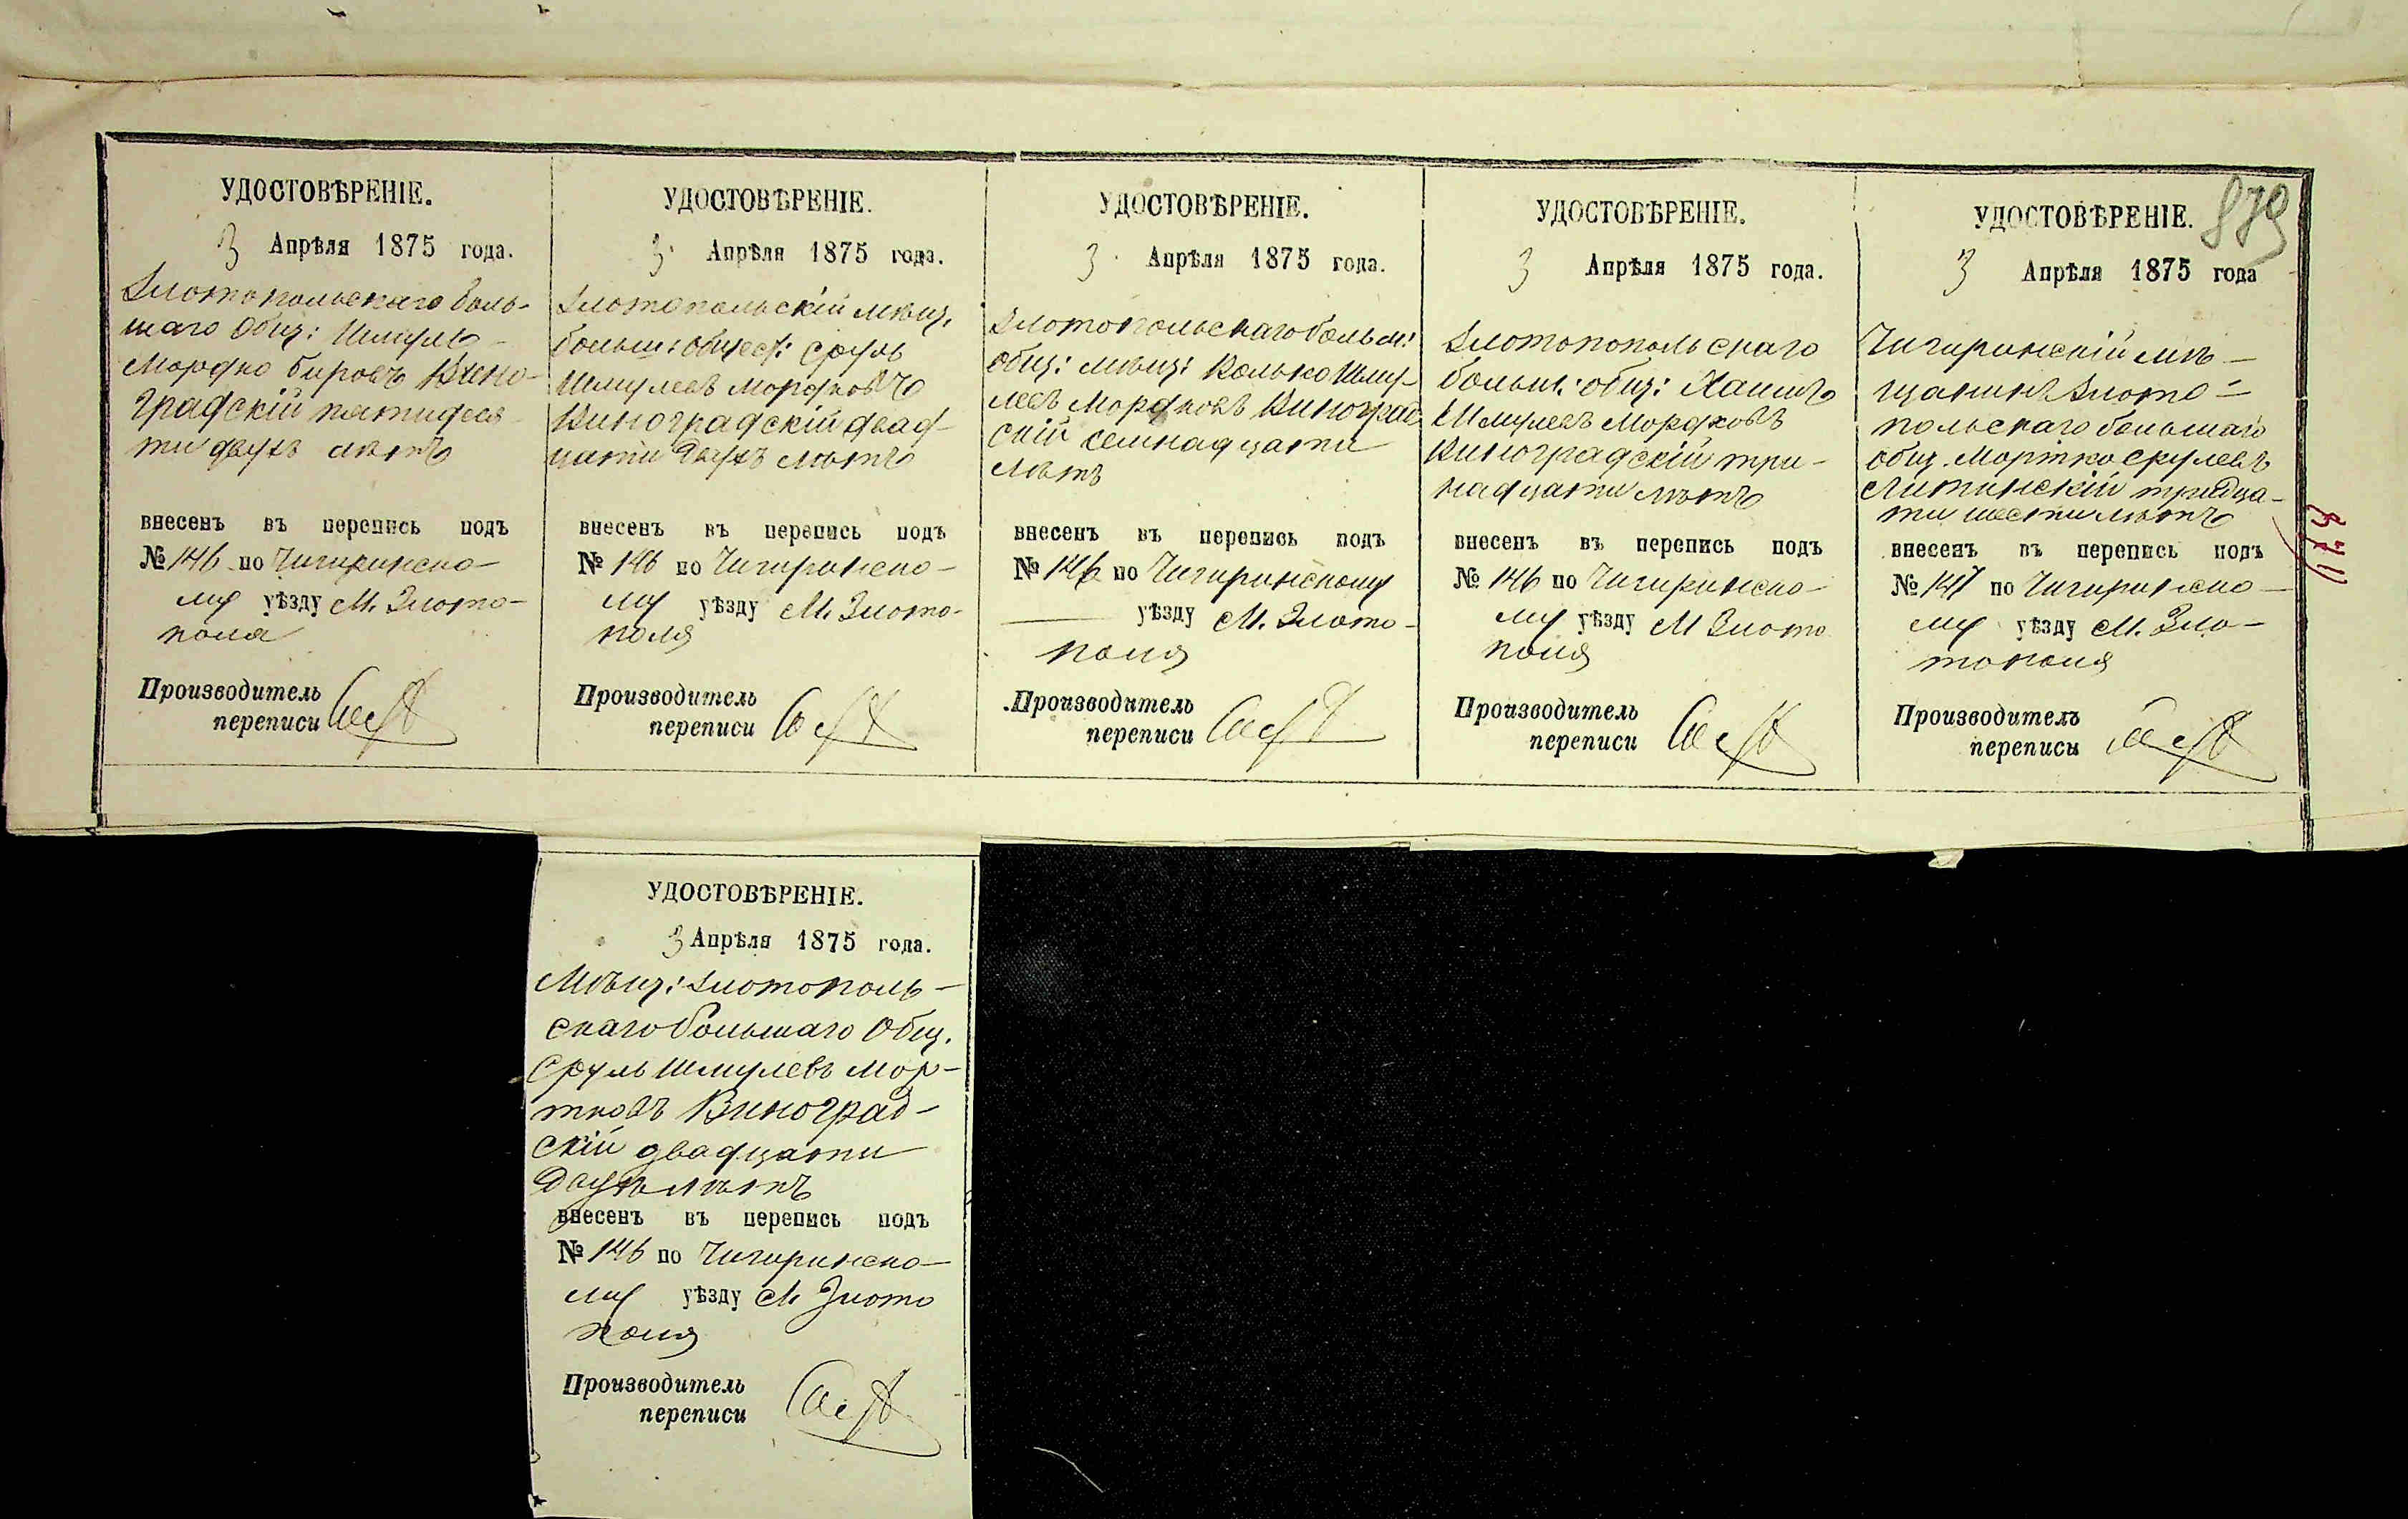 879
УДОСТОВѢРЕНІЕ.
3 Апрѣля 1875 года.
Златопольскаго боль-
шаго Общ: Шмуль
Мордко Беровъ Вино-
градскій пятидеся-
ти двухъ лѣтъ
внесенъ въ перепись подъ
№ 146 по Чигиринско-
му уѣзду М. Злато-
поля
Производитель
переписи
УДОСТОВѢРЕНІЕ.
3 Апрѣля 1875 года.
Златопольскій мѣщ.
больш: общест: Сруль
Шмулевъ Мордковъ
Виноградскій двад-
цати двухъ лѣтъ
внесенъ въ перепись подъ
№ 146 по Чигиринско-
му уѣзду М. Злато-
поля
Производитель
переписи
УДОСТОВѢРЕНІЕ.
3 Апрѣля 1875 года.
Златопольскаго больш:
общ: мѣщ: Волько Шму-
левъ Мордковъ Виноград-
скій семнадцати
лѣтъ
внесенъ въ перепись подъ
№ 146 по Чигиринскому
уѣзду М. Злато-
поля
Производитель
переписи
УДОСТОВѢРЕНІЕ.
3 Апрѣля 1875 года.
Злотопопольскаго
больш: общ: Хаимъ
Шмулевъ Мордковъ
Виноградскій три-
надцати лѣтъ
внесенъ въ перепись подъ
№ 146 по Чигиринско-
му уѣзду М Злато
поля
Производитель
переписи
УДОСТОВѢРЕНІЕ.
3 Апрѣля 1875 года
Чигиринскій мѣ-
щанинъ Злато-
польскаго большаго
общ. Мортко Срулевъ
Литинскій тридца-
ти шести лѣтъ
внесенъ въ перепись подъ
№ 147 по Чигиринско-
му уѣзду М. Зла-
тополя
Производитель
переписи
УДОСТОВѢРЕНІЕ.
3 Апрѣля 1875 года.
Мѣщ: Златополь-
скаго большаго Общ.
Сруль Шмулевъ Мор-
тковъ Виноград-
скій двадцати
двухъ лѣтъ
внесенъ въ перепись подъ
№ 146 по Чигиринско-
му уѣзду М Злато
поля
Производитель
переписи